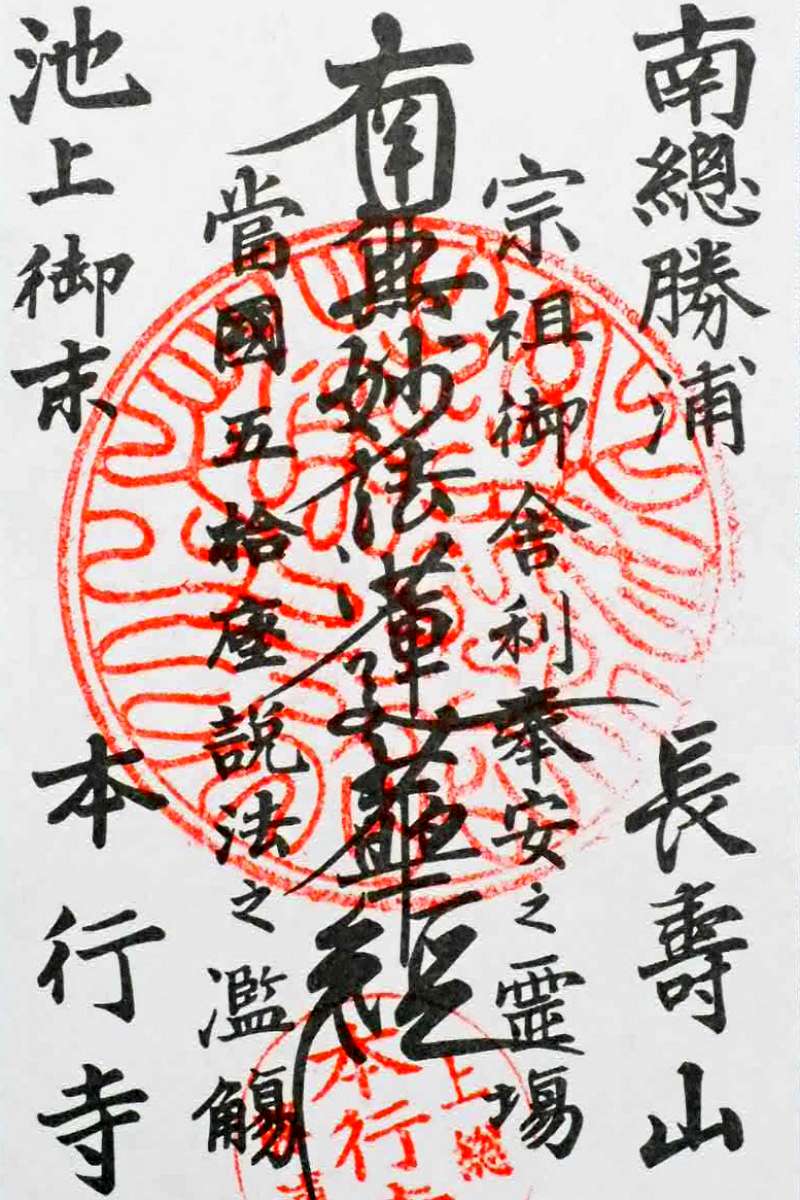 南總勝浦 長壽山
宗祖御舎利奉安之霊場
南無妙法蓮華経
當國五拾座説法之濫觴
池上御末 本行寺
上總
本行